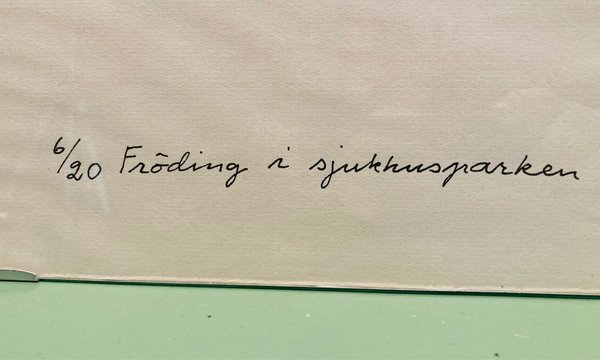 6/20 Fröding i sjukhusparken